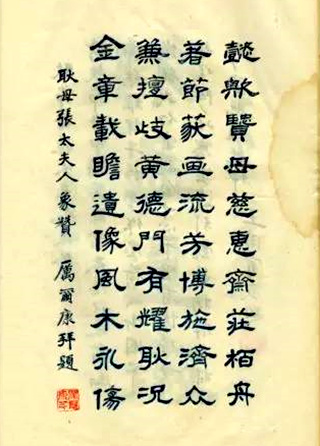 懿歟賢母慈惠齋莊栢舟
著節荻画流芳博施濟众
兼擅歧黄德門有耀耿况
金章載瞻遺像風木永傷
耿母張太夫人象贊 厲爾康拜題